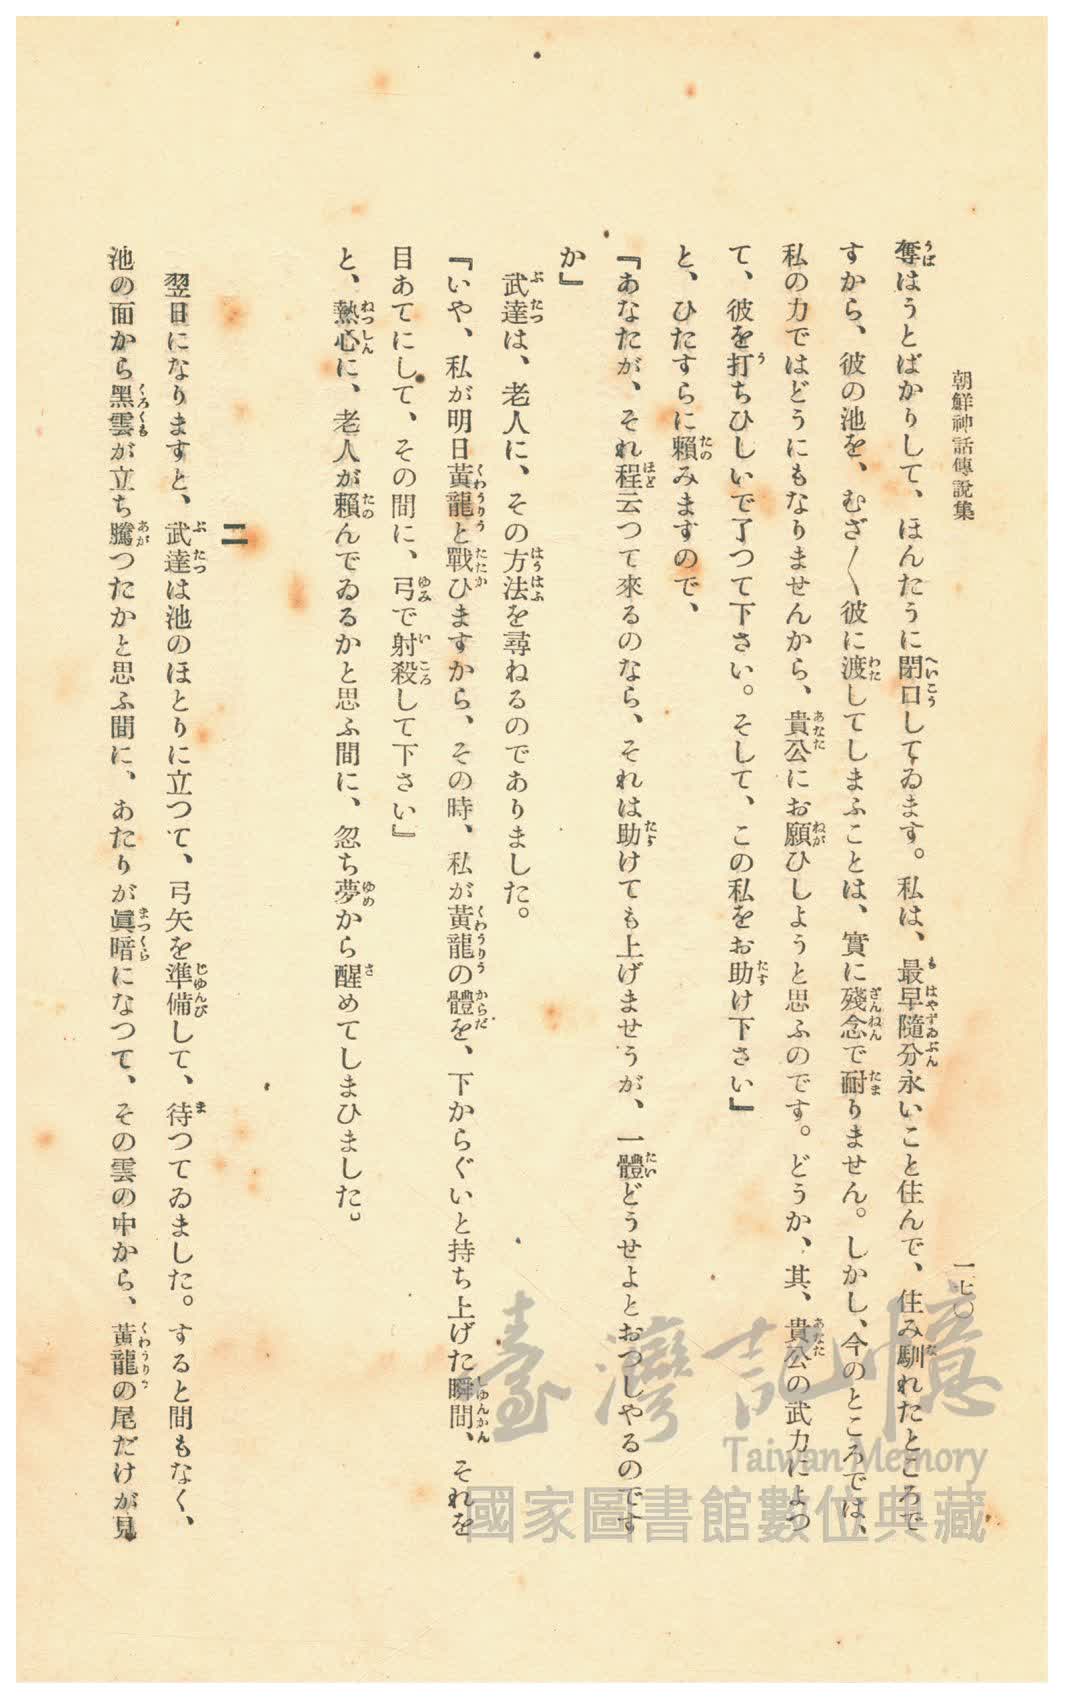 朝鮮神話傳說集
一七〇
奪はうとばかりして、ほんたうに閉口してゐます。私は、最早隨分永いこと住んで、住み馴れたところで
すから、彼の池を、むざ〳〵彼に渡してしまふことは、實に殘念で耐りません。しかし、今のところでは、
私の力ではどうにもなりませんから、貴公にお願ひしようと思ふのです。どうか、其、貴公の武力によつ
て、彼を打ちひしいで了つて下さい。そして、この私をお助け下さい』
と、ひたすらに賴みますので、
『あなたが、それ程云つて來るのなら、それは助けても上げませうが、一體どうせよとおつしやるのです
か』
武達は、老人に、その方法を尋ねるのでありました。
『いや、私が明日黃龍と戰ひますから、その時、私が黃龍の體を、下からぐいと持ち上げた瞬間、それを
目あてにして、その間に、弓で射殺して下さい』
と、熱心に、老人が賴んでゐるかと思ふ間に、忽ち夢から醒めてしまひました。
二
翌日になりますと、武達は池のほとりに立つて、弓矢を準備して、待つてゐました。すると間もなく、
池の面から黑雲が立ち騰つたかと思ふ間に、あたりが眞暗になつて、その雲の中から、黃龍の尾だけが見
臺灣記憶
Taiwan Memory
國家圖書館數位典藏